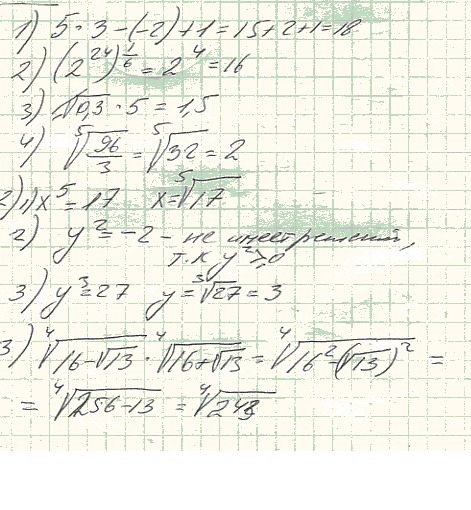 1) 5·3-(-2)+1=15+2+1=18
2) (2²⁴)^{1/6}=2⁴=16
3) √0,3·5=1,5
4) ⁵√(96/3)=⁵√32=2
2) 1) x⁵=17 x=⁵√17
2) y²=-2 - не имеет решений,
т.к y²≥0
3) y³=27 y=³√27=3
3) ⁴√(16-√13)·⁴√(16+√13)=⁴√(16²-(√13)²)=
=⁴√(256-13)=⁴√243